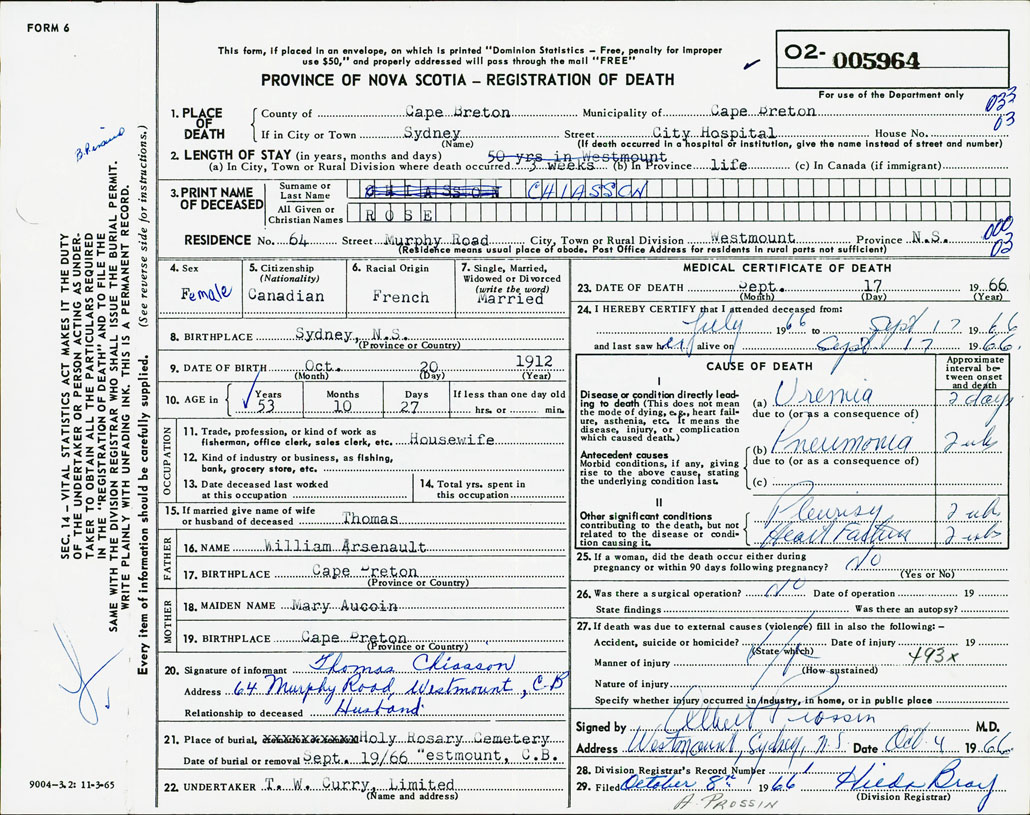 FORM 6
This form, if placed in an envelope, on which is printed "Dominion Statistics – Free, penalty for improper
use $50," and properly addressed will pass through the mail "FREE"
PROVINCE OF NOVA SCOTIA – REGISTRATION OF DEATH
O2- 005964
For use of the Department only
033
03
1. PLACE OF DEATH
County of Cape Breton Municipality of Cape Breton
If in City or Town Sydney Street City Hospital House No.
(Name) (If death occurred in a hospital or institution, give the name instead of street and number)
2. LENGTH OF STAY (in years, months and days) 50 yrs in Westmount
(a) In City, Town or Rural Division where death occurred 3 weeks (b) In Province life (c) In Canada (if immigrant)
3. PRINT NAME OF DECEASED
Surname or Last Name CHIASSON CHIASSON
All Given or Christian Names ROSE
RESIDENCE No. 64 Street Murphy Road City, Town or Rural Division Westmount Province N.S.
(Residence means usual place of abode. Post Office Address for residents in rural parts not sufficient)
000
03
4. Sex Female
5. Citizenship (Nationality) Canadian
6. Racial Origin French
7. Single, Married, Widowed or Divorced (write the word) Married
8. BIRTHPLACE Sydney, N.S.
(Province or Country)
9. DATE OF BIRTH Oct. 20 1912
(Month) (Day) (Year)
10. AGE in Years 53 Months 10 Days 27 If less than one day old hrs. or min.
OCCUPATION
11. Trade, profession, or kind of work as fisherman, office clerk, sales clerk, etc. Housewife
12. Kind of industry or business, as fishing, bank, grocery store, etc.
13. Date deceased last worked at this occupation
14. Total yrs. spent in this occupation
15. If married give name of wife or husband of deceased Thomas
FATHER
16. NAME William Arsenault
17. BIRTHPLACE Cape Breton
(Province or Country)
MOTHER
18. MAIDEN NAME Mary Aucoin
19. BIRTHPLACE Cape Breton
(Province or Country)
20. Signature of informant Thomas Chiasson
Address 64 Murphy Road, Westmount, C-B
Relationship to deceased Husband
21. Place of burial, xxxxxxxxxxx Holy Rosary Cemetery
Date of burial or removal Sept. 19/66 "estmount, C.B.
22. UNDERTAKER T. W. Curry, Limited
(Name and address)
MEDICAL CERTIFICATE OF DEATH
23. DATE OF DEATH Sept. 17 1966
(Month) (Day) (Year)
24. I HEREBY CERTIFY that I attended deceased from:
July 1966 to Sept 17 1966
and last saw her alive on Sept 17 1966.
CAUSE OF DEATH
Approximate interval between onset and death
I
Disease or condition directly leading to death (This does not mean the mode of dying, e.g., heart failure, asthenia, etc. It means the disease, injury, or complication which caused death.)
(a) Uremia 2 days
due to (or as a consequence of)
Antecedent causes
Morbid conditions, if any, giving rise to the above cause, stating the underlying condition last.
(b) Pneumonia 2 wks
due to (or as a consequence of)
(c)
II
Other significant conditions
contributing to the death, but not related to the disease or condition causing it.
Pleurisy 2 wks
Heart Failure 2 wks
25. If a woman, did the death occur either during pregnancy or within 90 days following pregnancy? NO
(Yes or No)
26. Was there a surgical operation? NO Date of operation 19
State findings Was there an autopsy?
27. If death was due to external causes (violence) fill in also the following: –
Accident, suicide or homicide? Date of injury 19
(State which)
Manner of injury 493x
(How sustained)
Nature of injury
Specify whether injury occurred in industry, in home, or in public place
Signed by Albert Prossin M.D.
Address Westmount, Sydney, N.S. Date Oct 4 1966
28. Division Registrar's Record Number
29. Filed October 8th 1966 Hilda Bray
(Division Registrar)
A PROSSIN
SEC. 14 – VITAL STATISTICS ACT MAKES IT THE DUTY
OF THE UNDERTAKER OR PERSON ACTING AS UNDER-
TAKER TO OBTAIN ALL THE PARTICULARS REQUIRED
IN THE "REGISTRATION OF DEATH" AND TO FILE THE
SAME WITH THE DIVISION REGISTRAR WHO SHALL ISSUE THE BURIAL PERMIT.
WRITE PLAINLY WITH UNFADING INK. THIS IS A PERMANENT RECORD.
Every item of information should be carefully supplied. (See reverse side for instructions.)
9004-3.2: 11-3-65